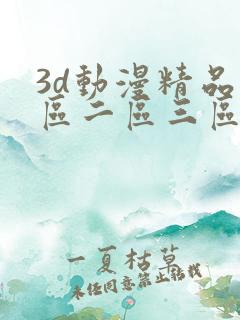 3d動漫精品
區二區三區
一夏枯草
未经同意禁止转载